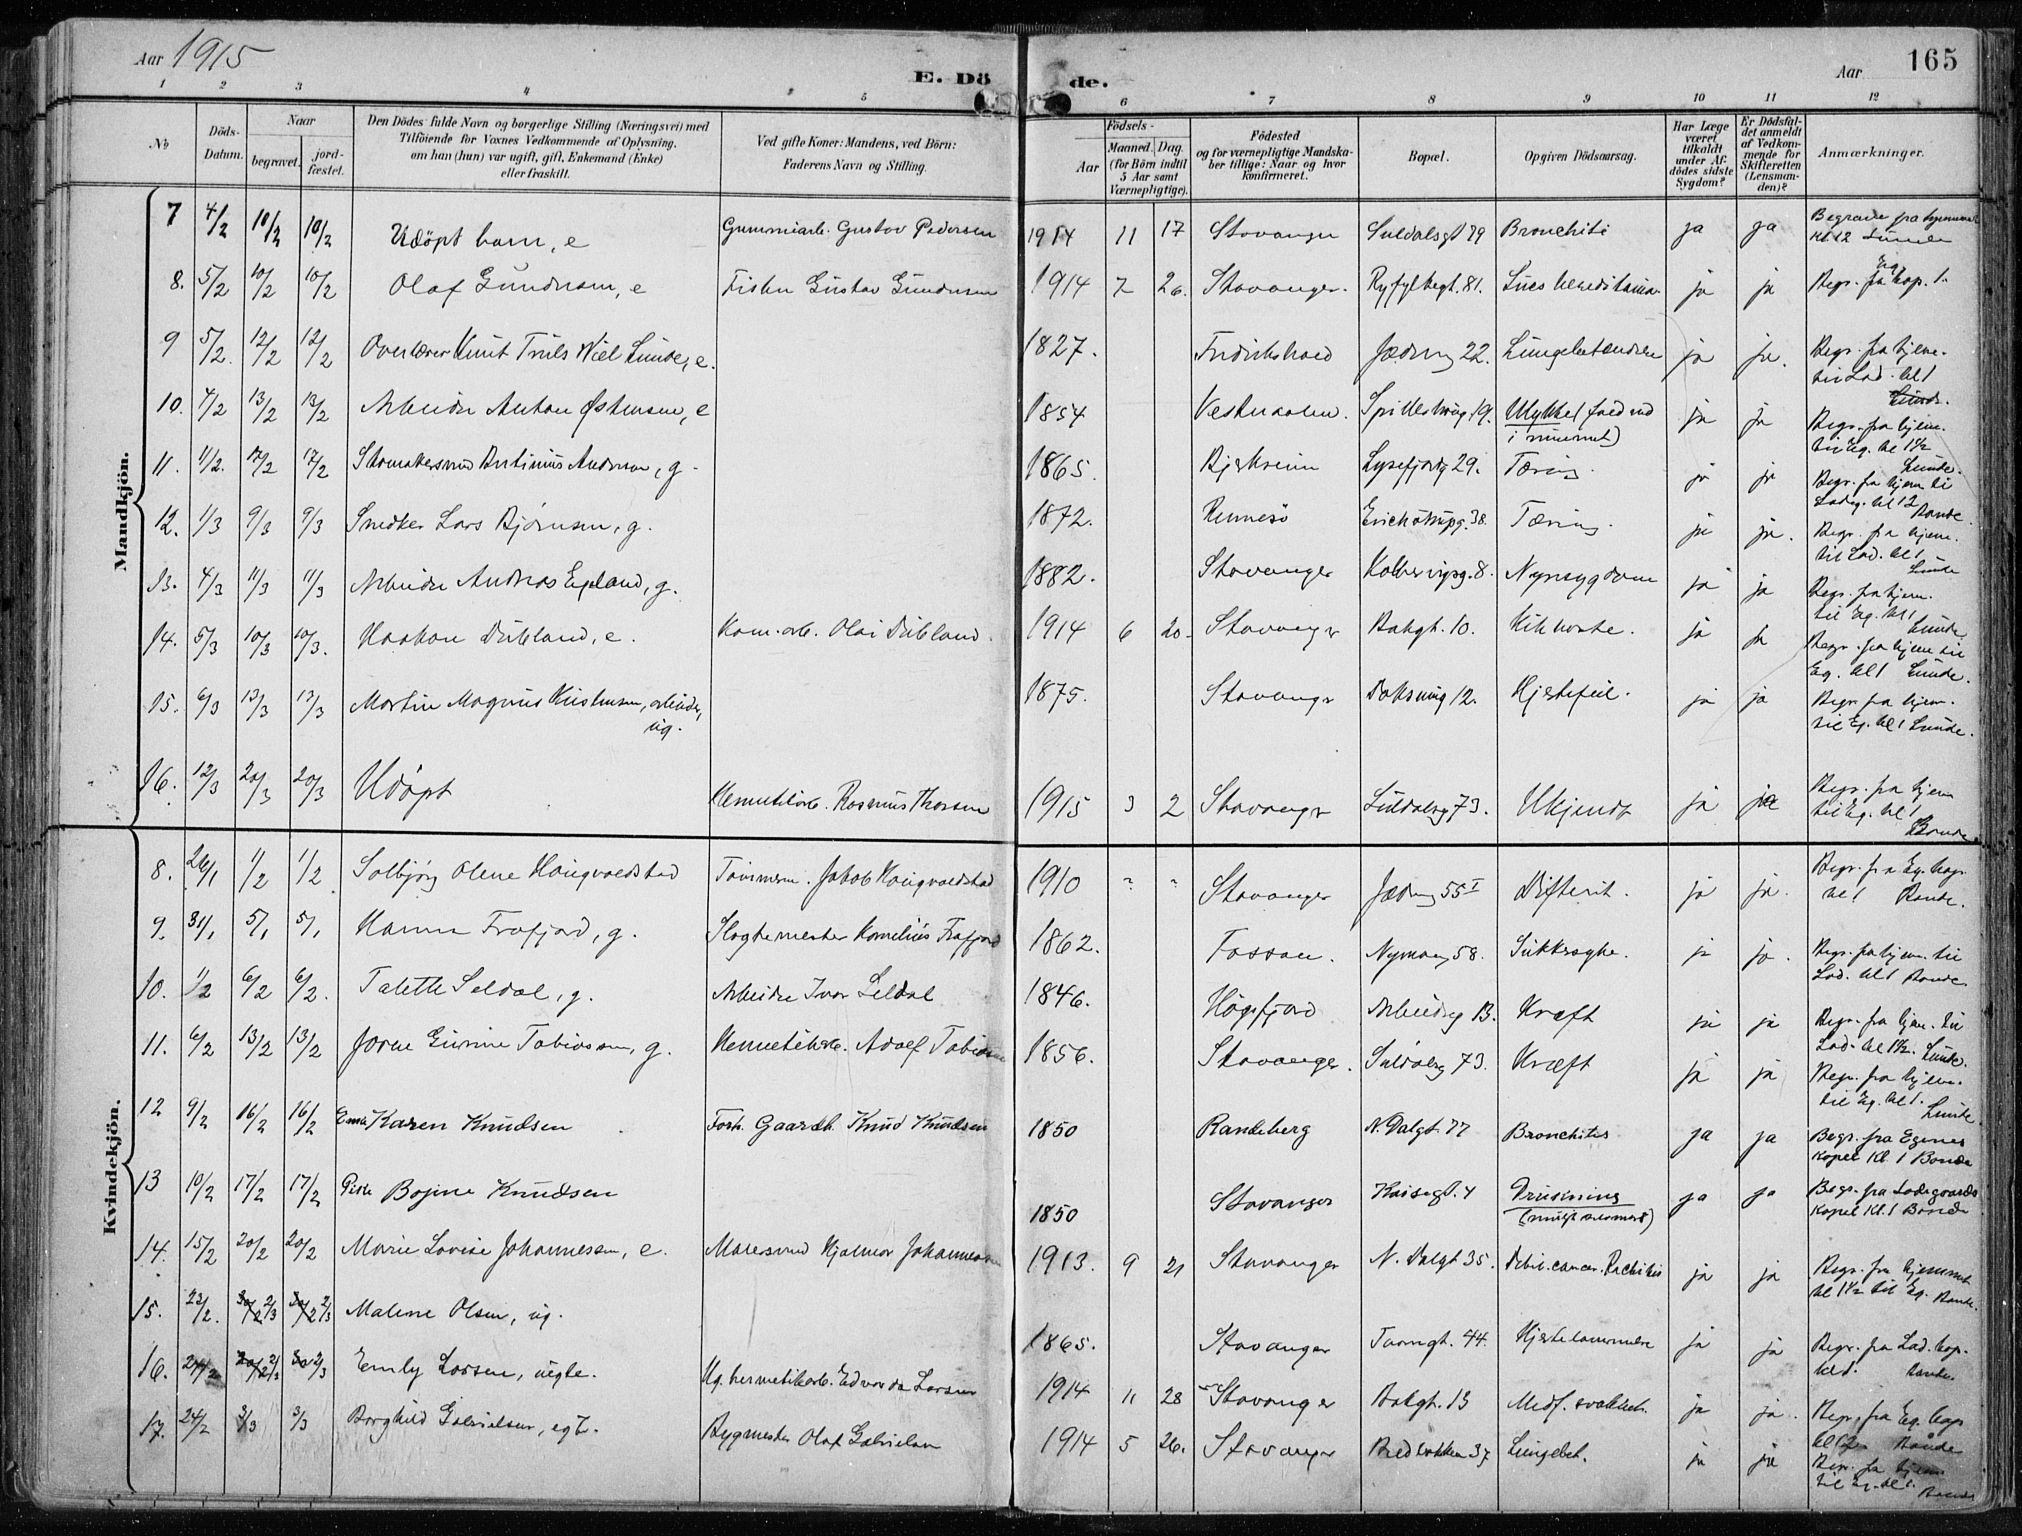 Aar 1915
E. Dö de.
Aar 165
1 2 3 4 5 6 7 8 9 10 11 12
No
Döds-Datum.
Naar
begravet.
jord-fæstet.
Den Dödes fulde Navn og borgerlige Stilling (Næringsvei) med
Tilföiende for Voxnes Vedkommende af Oplysning,
om han (hun) var ugift, gift, Enkemand (Enke)
eller fraskilt.
Ved gifte Koner: Mandens, ved Börn:
Faderens Navn og Stilling.
Födsels-
Aar
Maaned. Dag.
(for Börn indtil
5 Aar samt
Værnepligtige).
Födested
og for værnepligtige Mandska-
ber tillige: Naar og hvor
konfirmeret.
Bopæl.
Opgiven Dödsaarsag.
Har Læge
været
tilkaldt
under Af-
dödes sidste
Sygdom?
Er Dödsfal-
det anmeldt
af Vedkom-
mende for
Skifteretten
(Lensman-
den)?
Anmærkninger.
Mandkjön.
7 4/2 10/2 10/2 Udöpt barn, e Gummiarb. Gustav Pedersen 1914 11 17 Stavanger Suldalsgt 79 Bronchiti ja ja Begravet fra hjemmet Kl 12 Lunde
8. 5/2 10/2 10/2 Olaf Gundersen, e Fisker Gustav Gundersen 1914 7 26. Stavanger. Ryfylkegt. 81. Lues hereditaria ja ja Begr. fra Eg. kap. 1.
9 5/2. 12/2 12/2 Overlærer Knut Truls Wiel Lunde, e. 1827. Fredrikshald Jædervg 22. Lungebetændelse ja ja. Begr. fra hjem. til Lad. kl 1 Lunde.
10. 4/2 13/2 13/2 Arbeider Anton Østensen, e 1854 Vesteraalen. Spilderhaug. 19. Ulykke (faldt ned i rummet) ja ja Begr. fra hjem. til Eg. kl 1½ Lunde.
11. 11/2. 17/2 17/2 Skomakersvend Andersen, g. 1865. Bjerkreim Lysefjordg 29. Tæring. ja ja Begr. fra hjem til Ladeg. kl 12 Bonde.
12. 1/3 9/3 9/3 Snedker Lars Bjørnsen, g. 1872. Rennesö Erichstrupg. 38. Tæring. ja ja. Begr. fra hjem. til Lad. kl 1 Lunde
13. 4/3 11/3 11/3 Arbeider Andreas Egeland, g. 1882. Stavanger Kolbervigsg. 8. Nyresygdom ja ja Begr. fra hjem. til Eg. kl 1 Lunde
14. 5/3 10/3 10/3. Haakon Dubland, e. Kom. arb. Olai Dubland. 1914 6 20. Stavanger Bakgt. 10. Kikhoste. ja ja Begr. fra hjem til Eg. kl 1 Lunde.
15. 6/3 13/3 13/3 Martin Magnus Kristensen, arbeider, ug. 1875. Stavanger 12. Hjertefeil. ja ja Begr. fra hjem. til Eg. kl 1 Lunde.
16. 12/3 20/3 20/3 Udöpt Hermetikarb. Rasmus Thorsen 1915 3 2 Stavanger Suldalsg 73. Ukjendt ja ja Begr. fra hjem til Eg. kl 1 Bonde
Kvindekjön.
8. 26/1 1/2 1/2 Solbjørg Olene Haugvaldstad Tömmerm. Jakob Haugvaldstad 1910 " " Stavanger Jædervg 55 I Difterit. ja ja. Begr. fra Eg. kap. kl 1 Bonde.
9. 31/1 5/1 5/1 Hanna Frafjord, g. Slagtermester Kornelius Frafjord 1862. Fossan. Nymansg 58. Sukkersyke. ja ja. Begr. fra hjem. til Lad. kl 1 Bonde.
10. 1/2 6/2 6/2. Talette Seldal, g. Arbeider Ivar Seldal 1846. Høgsfjord Arbeiderg 13. Kræft ja ja Begr. fra hjem. til Lad. kl 1½. Lunde.
11. 6/2 13/2 13/2 Jorine Gurine Tobiassen, g. Hermetikarb. Adolf Tobiassen 1856. Stavanger. Suldalsg 73. Kræft ja ja Begr. fra hjem. til Eg. kl 1. Lunde
12 9/2 16/2 16/2 Enke Karen Knudsen Forh. Gaardb. Knud Knudsen 1850 Randeberg N. Dalgt. 77 Bronchites ja ja Begr. fra Egenes kapel Kl. 1 Bonde
13 10/2 17/2 17/2 Pike Bojine Knudsen 1850 Stavanger Kaisegt. 4 Drukning (muligt selvmord) ja ja Begr. fra Ladegaards kapel Kl. 1 Bonde
14. 15/2 20/2 20/2 Marie Lovise Johannesen, e. Malersvend Hjalmar Johannesen 1913. 9 21 Stavanger N. Dalgt 35. Rachitis ja ja Begr. fra hjemmet kl 1½ til Eg. Bonde.
15. 23/2. 2/3 2/3 Malene Olsen, ug. 1865. Stavanger Taarngt. 44. Hjertelammelse ja ja Begr. fra Lad. kap. kl 1. Bonde
16. 2/3 2/3 Emly Larsen, uegte. Ug. hermetikarb. Edvarda Larsen 1914 11 28 Stavanger Bakgt. 13 Medf. svakhet. ja ja. Begr. fra Eg. kap. Bonde
17. 24/2 3/3 3/3 Borghild Gabrielsen, egt. Bygmester Olaf Gabrielsen 1914 5 26. Stavanger Bredbakken 37 Lungebet. ja ja Begr. fra hjem. til Eg. kl 1. Bonde